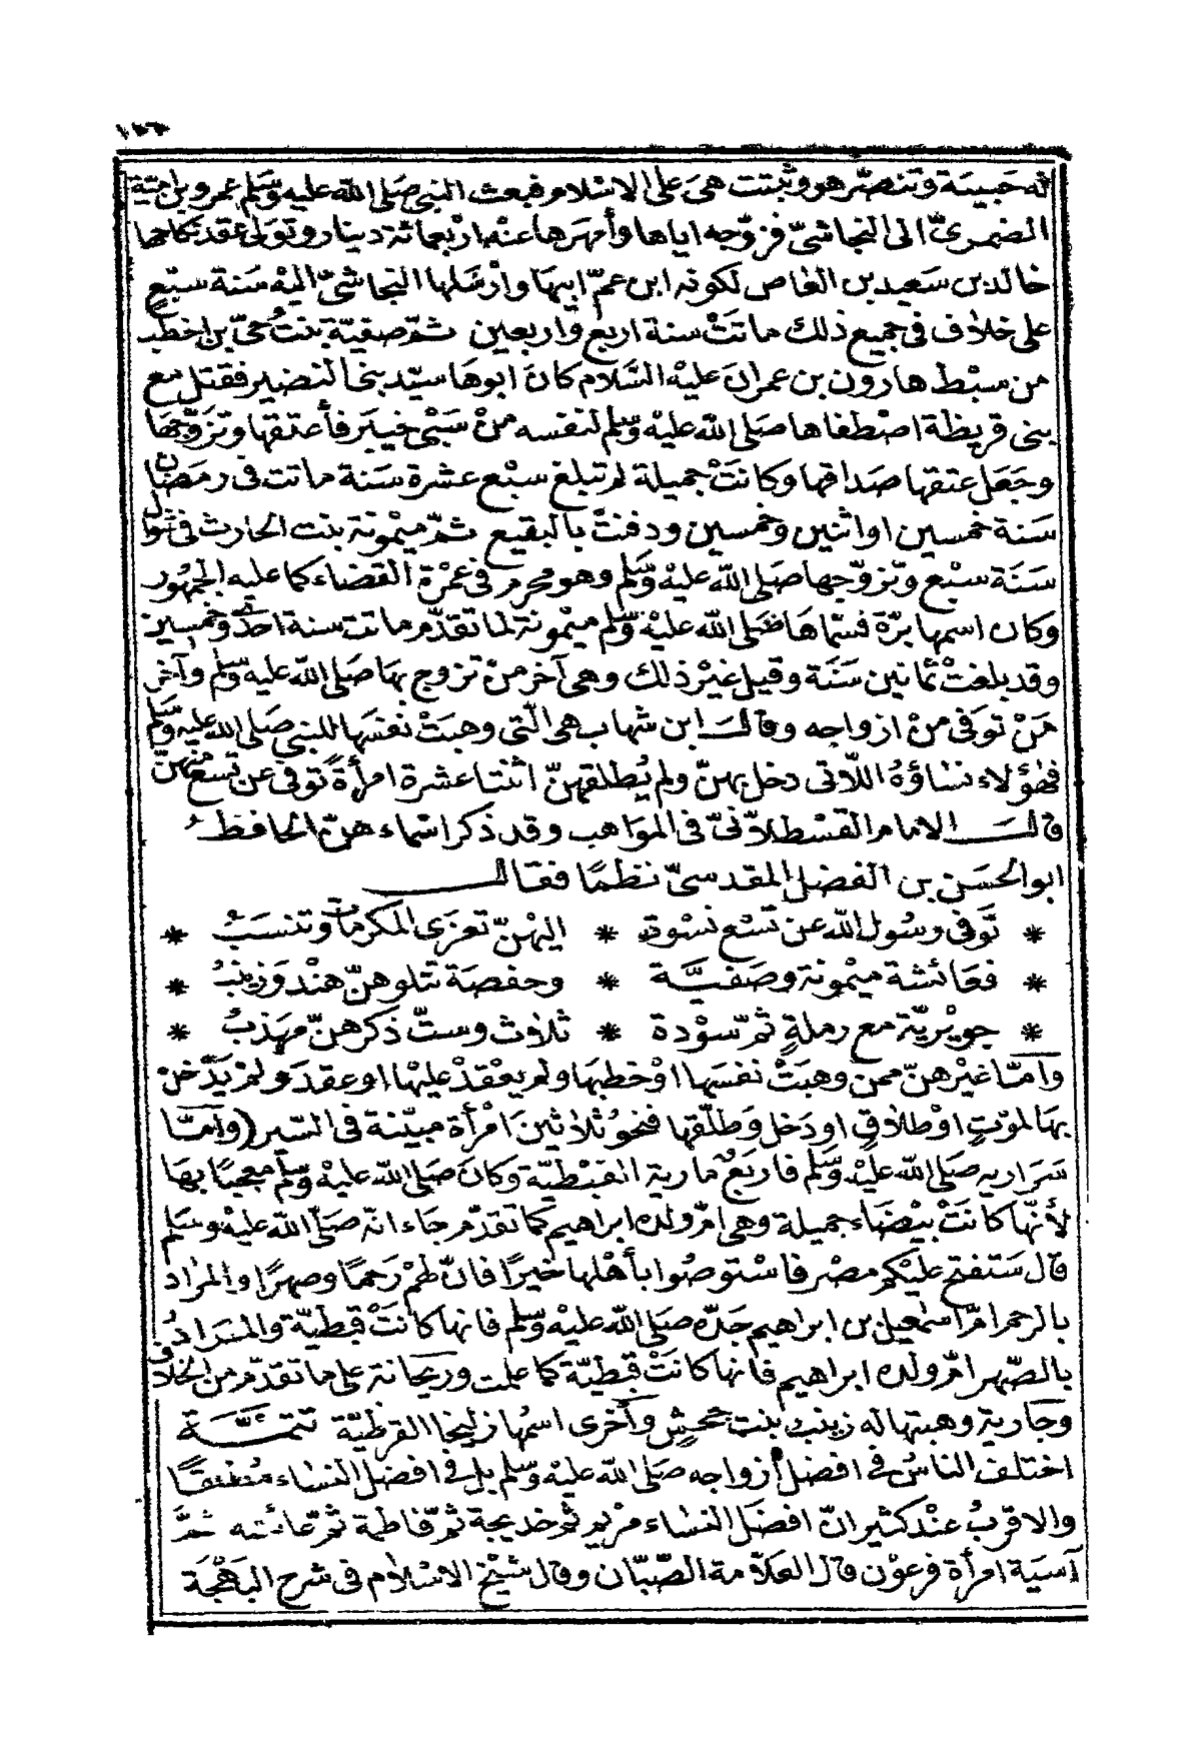 له حبيبة وتنصّر هو وثبتت هىَ على الاسْلام فبعث النبي صَلى اللّٰه عليه وسَلم عمرو بن اميّة
الضمرىّ الى النجاشىّ فزوّجه اياها وأمهَرها عنْه ارْبعمائة دينار وتولى عقد نكاحها
خالد بن سَعيد بن العَاص لكونه ابن عمّ ابيهَا وارْسَلها النجاشىّ اليْه سَنة سبْع
على خلاف فى جميع ذلك ماتتْ سنة اربع واربعين ثمّ صفيّة بنتُ حىّ بن اخطب
من سبْط هارون بن عمران عليْه السَّلام كانَ ابوهَا سيّد بنى النضير فقتل مع
بنى قريظة اصْطفاها صَلى اللّٰه عليْه وسَّلم لنفسه منْ سَبْى خيبَر فأعتقها وتزَوّجهَا
وجَعَل عتقها صَداقها وكانتْ جميلة لم تبلغ سبْع عشرة سَنة ماتت فى رمضَان
سَنة خمسين او اثنين وخمسين ودفنتْ بالبقيع ثمّ ميْمونة بنت الحارث فى شوال
سَنَة سبْع وتزوّجها صَلى اللّٰه عليْه وسَّلم وهو محْرم فى عمْرة القضَاء كما عليه الجمهُور
وكان اسمها برّة فسمّاهَا صَلى اللّٰه عليْه وسَّلم ميْمونة لما تقدّم ماتت سنة احدى وخمسين
وقد بلغتْ ثمانين سَنَة وقيل غيْر ذلك وهى آخر منْ تزوج بهَا صَلى اللّٰه عليه وسَلم وآخر
مَنْ توفى منْ ازواجه وقالَ ابن شهاب هى الّتى وهبَتْ نفسَها للنبي صَلى الله عليه وسَلم
فهؤلاء نسَاؤهُ اللّاتى دخل بهنّ ولم يُطلقهنّ اثنتا عشرة امرأةً توفى عن تسْع منهنّ
قالَ الامام القسْطلانىّ فى الموَاهب وقد ذكر اسْماء هنّ الحافظ
ابو الحسَن بن الفضل المقدسىّ نظمًا فقال
* تَوفى رسُول اللّٰه عن تسْع نسْوة * اليهنّ تعزَى المكرمات وتنسَبُ *
* فعَائشة ميْمونة وصَفيَّة * وحفصَة تتلوهنّ هنْد وَزينبُ *
* جويْريّة مع رملةٍ ثمّ سوْدة * ثلاث وستّ ذكرهنّ مهَذبُ *
وأمّا غيْرهنّ ممن وهبَتْ نفسَها اوْ خطبهَا ولم يعْقدْ عليْها او عقدَ ولمْ يَدْخلْ
بهَا لموْتٍ اوْ طلاقٍ او دَخل وَطلّقها فنحوُ ثلاثينَ امْرأة مبيّنة فى السّير (وأمّا
سَراريه صَلى اللّٰه عليْه وسَلم فاربَعٌ مارية القبْطيّة وكانَ صَلى اللّٰه عليْه وسَلم معجبًا بهَا
لأنّها كانَتْ بيْضَاء جميلة وهى امّ ولده ابراهيم كما تقدّم جَاء انّه صَلّى اللّٰه عليْه وسَلم
قال سَتفتح عليْكم مصْر فاسْتوصُوا بأهْلها خيْرًا فانّ لهمْ رَحمًا وصهرًا والمرَاد
بالرحم امّ اسْمعيل بن ابراهيم جَدّه صَلى اللّٰه عليْه وسَّلم فانها كانَتْ قبطيّة والمرَادُ
بالصّهر امّ ولده ابراهيم فانها كانَتْ قبطيّة كما علمت وريحَانة على ما تقدّم من الخلاف
وجَارية وهبتها له زينب بنت جحْشٍ وأخرى اسْمُها زليخا القرظيّة تتمّــة
اختلف الناسُ فى افضل أزواجه صَلى اللّٰه عليْه وسَلم بل فى افضل النسَاء مُطْلقًا
والاقربُ عنْد كثير انّ افضَل النسَاء مرْيم ثمّ خديجة ثمّ فاطمة ثمّ عائشه ثمَّ
آسيَة امرأة فرعوْن قال العَلاّمة الصّبّان وقال شيْخ الاسْلام فى شرح البَهْجَة